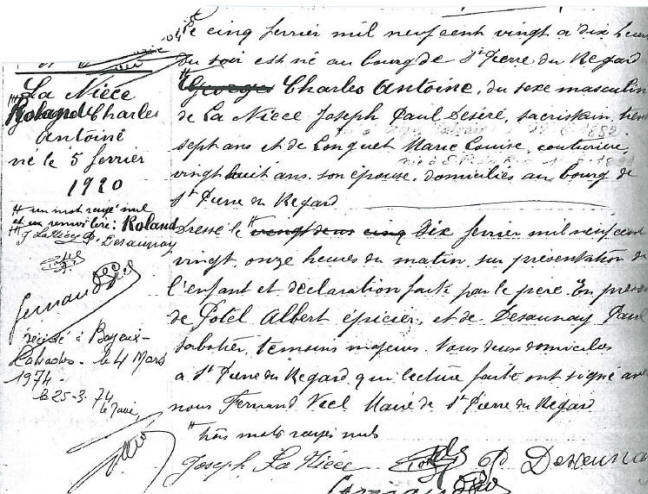 La Nièce
Roland Charles
Antoine
né le 5 février
1920
# un mot rayé nul
et un renvoi lire : Roland
J La Nièce P. Desaunay
Fernand Veel
décédé à Bayeux-
Calvados - le 4 Mars
1974.
le 25-3-74
le Maire
Le cinq février mil neuf cent vingt à dix heures
du soir est né au bourg de St Pierre du Regard
# Georges Charles Antoine, du sexe masculin
de La Nièce Joseph Paul Désiré, sacristain, trente
sept ans et de Longuet Marie Louise, couturière,
vingt huit ans, son épouse, domiciliés au bourg de
St Pierre du Regard
Dressé le # vingt deux cinq Dix février mil neuf cent
vingt, onze heures du matin, sur présentation de
l'enfant et déclaration faite par le père. En présence
de Potel Albert épicier, et de Desaunay Paul
sabotier, témoins majeurs. Tous deux domiciliés
à St Pierre du Regard, qui lecture faite ont signé avec
nous Fernand Veel Maire de St Pierre du Regard
# trois mots rayés nuls
Joseph La Nièce P Desaunay